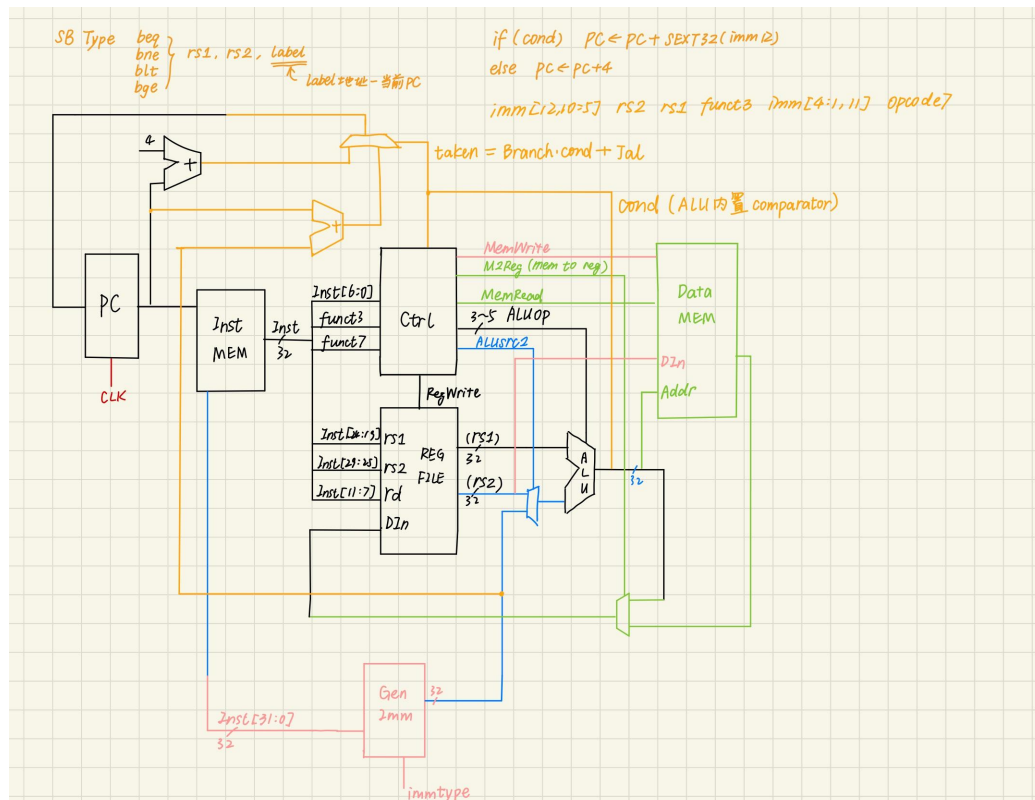 SB Type beq
bne
blt
bge
rs1, rs2, label
label地址-当前PC
if (cond) PC←PC+SEXT32(imm12)
else PC←PC+4
imm[12,10:5] rs2 rs1 funct3 imm[4:1,11] opcode7
4
+
taken = Branch·cond + Jal
+
cond (ALU内置 comparator)
PC
CLK
Inst
MEM
Inst
32
Inst[6:0]
funct3
funct7
Ctrl
MemWrite
M2Reg (mem to reg)
MemRead
3~5 ALUop
ALUsrc2
RegWrite
Data
MEM
DIn
Addr
rs1
Inst[29:25] rs2
Inst[11:7] rd
DIn
REG
FILE
(rs1)
32
(rs2)
32
ALU
32
Gen
Imm
32
Inst[31:0]
32
immtype